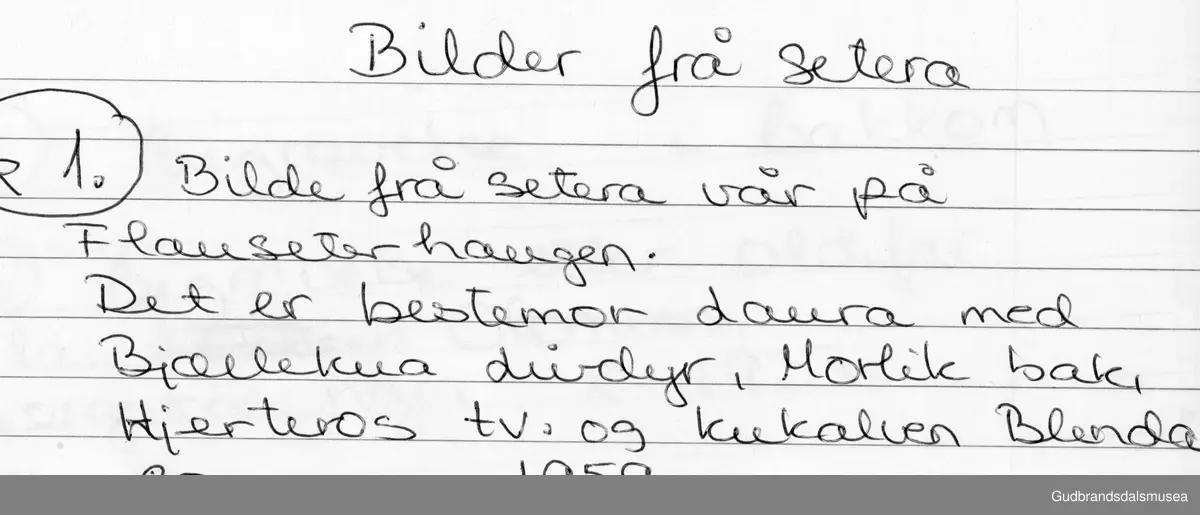 Bilder frå setera
1. Bilde frå setera vår på
Flauseterhaugen.
Det er bestemor daura med
Bjøllekua divdyr, Morlik bak,
Hjerteros tv. og kukalven Blenda
1959
Gudbrandsdalsmusea